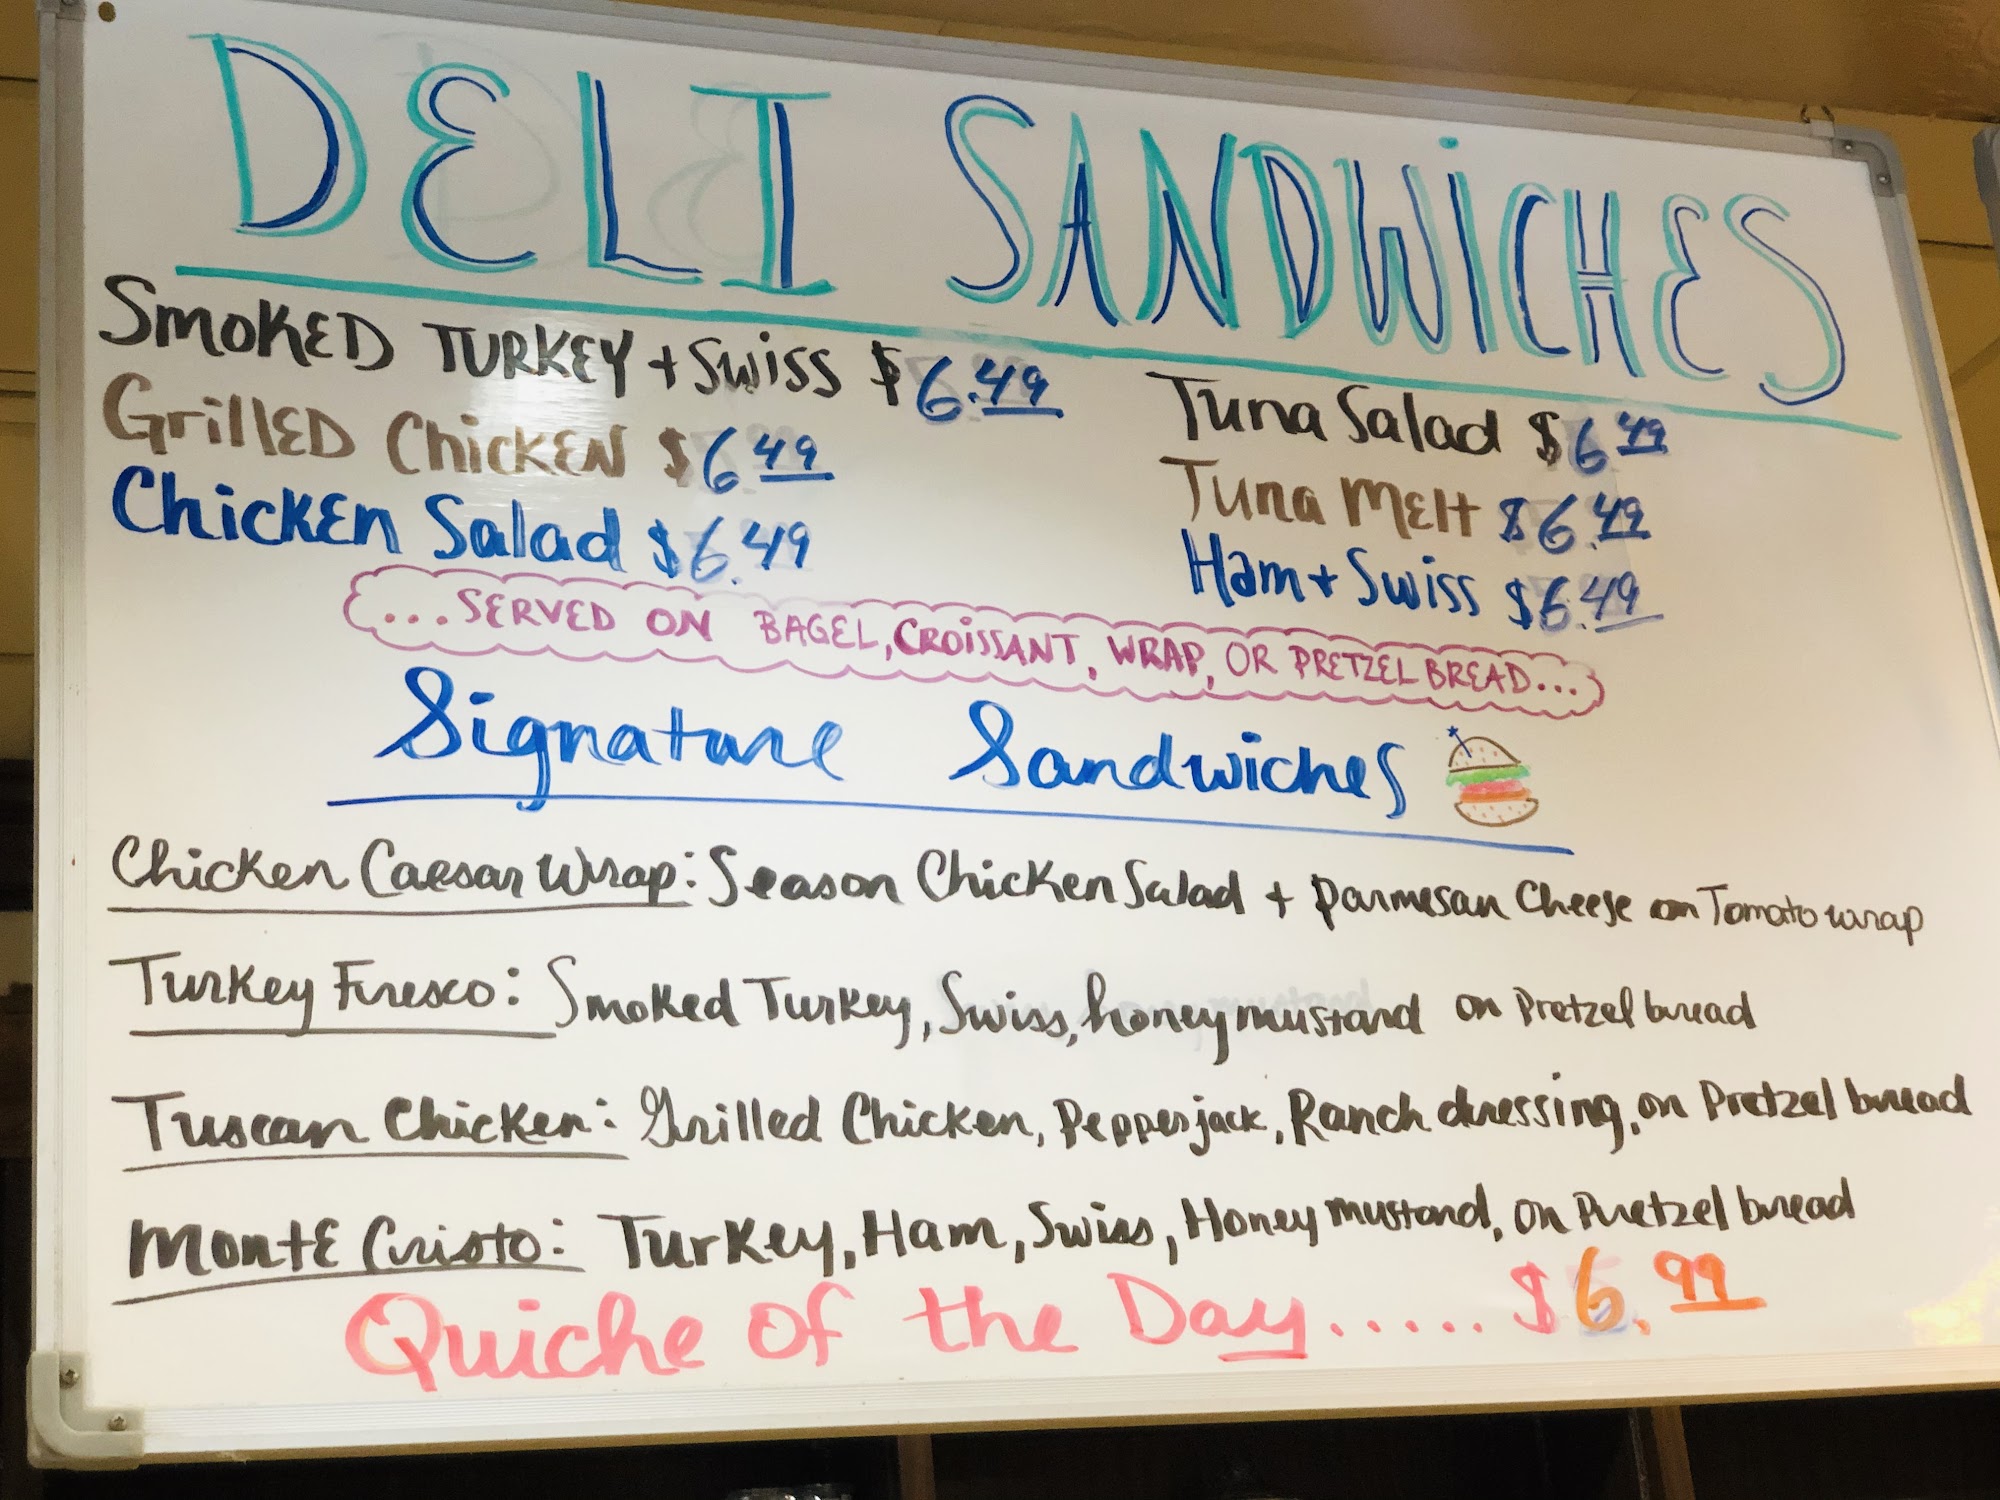 DELI SANDWICHES
SMOKED TURKEY + SWISS $6.49
GRILLED CHICKEN $6.49
CHICKEN Salad $6.49
Tuna Salad $6.49
Tuna MELT $6.49
Ham + Swiss $6.49
...SERVED ON BAGEL, CROISSANT, WRAP, OR PRETZEL BREAD...
Signature Sandwiches
Chicken Caesar Wrap: Season Chicken Salad + Parmesan Cheese on Tomato wrap
Turkey Fresco: Smoked Turkey, Swiss, honey mustard on Pretzel bread
Tuscan Chicken: Grilled Chicken, Pepperjack, Ranch dressing, on Pretzel bread
Monte Cristo: Turkey, Ham, Swiss, Honey mustard, on Pretzel bread
Quiche of the Day..... $6.99